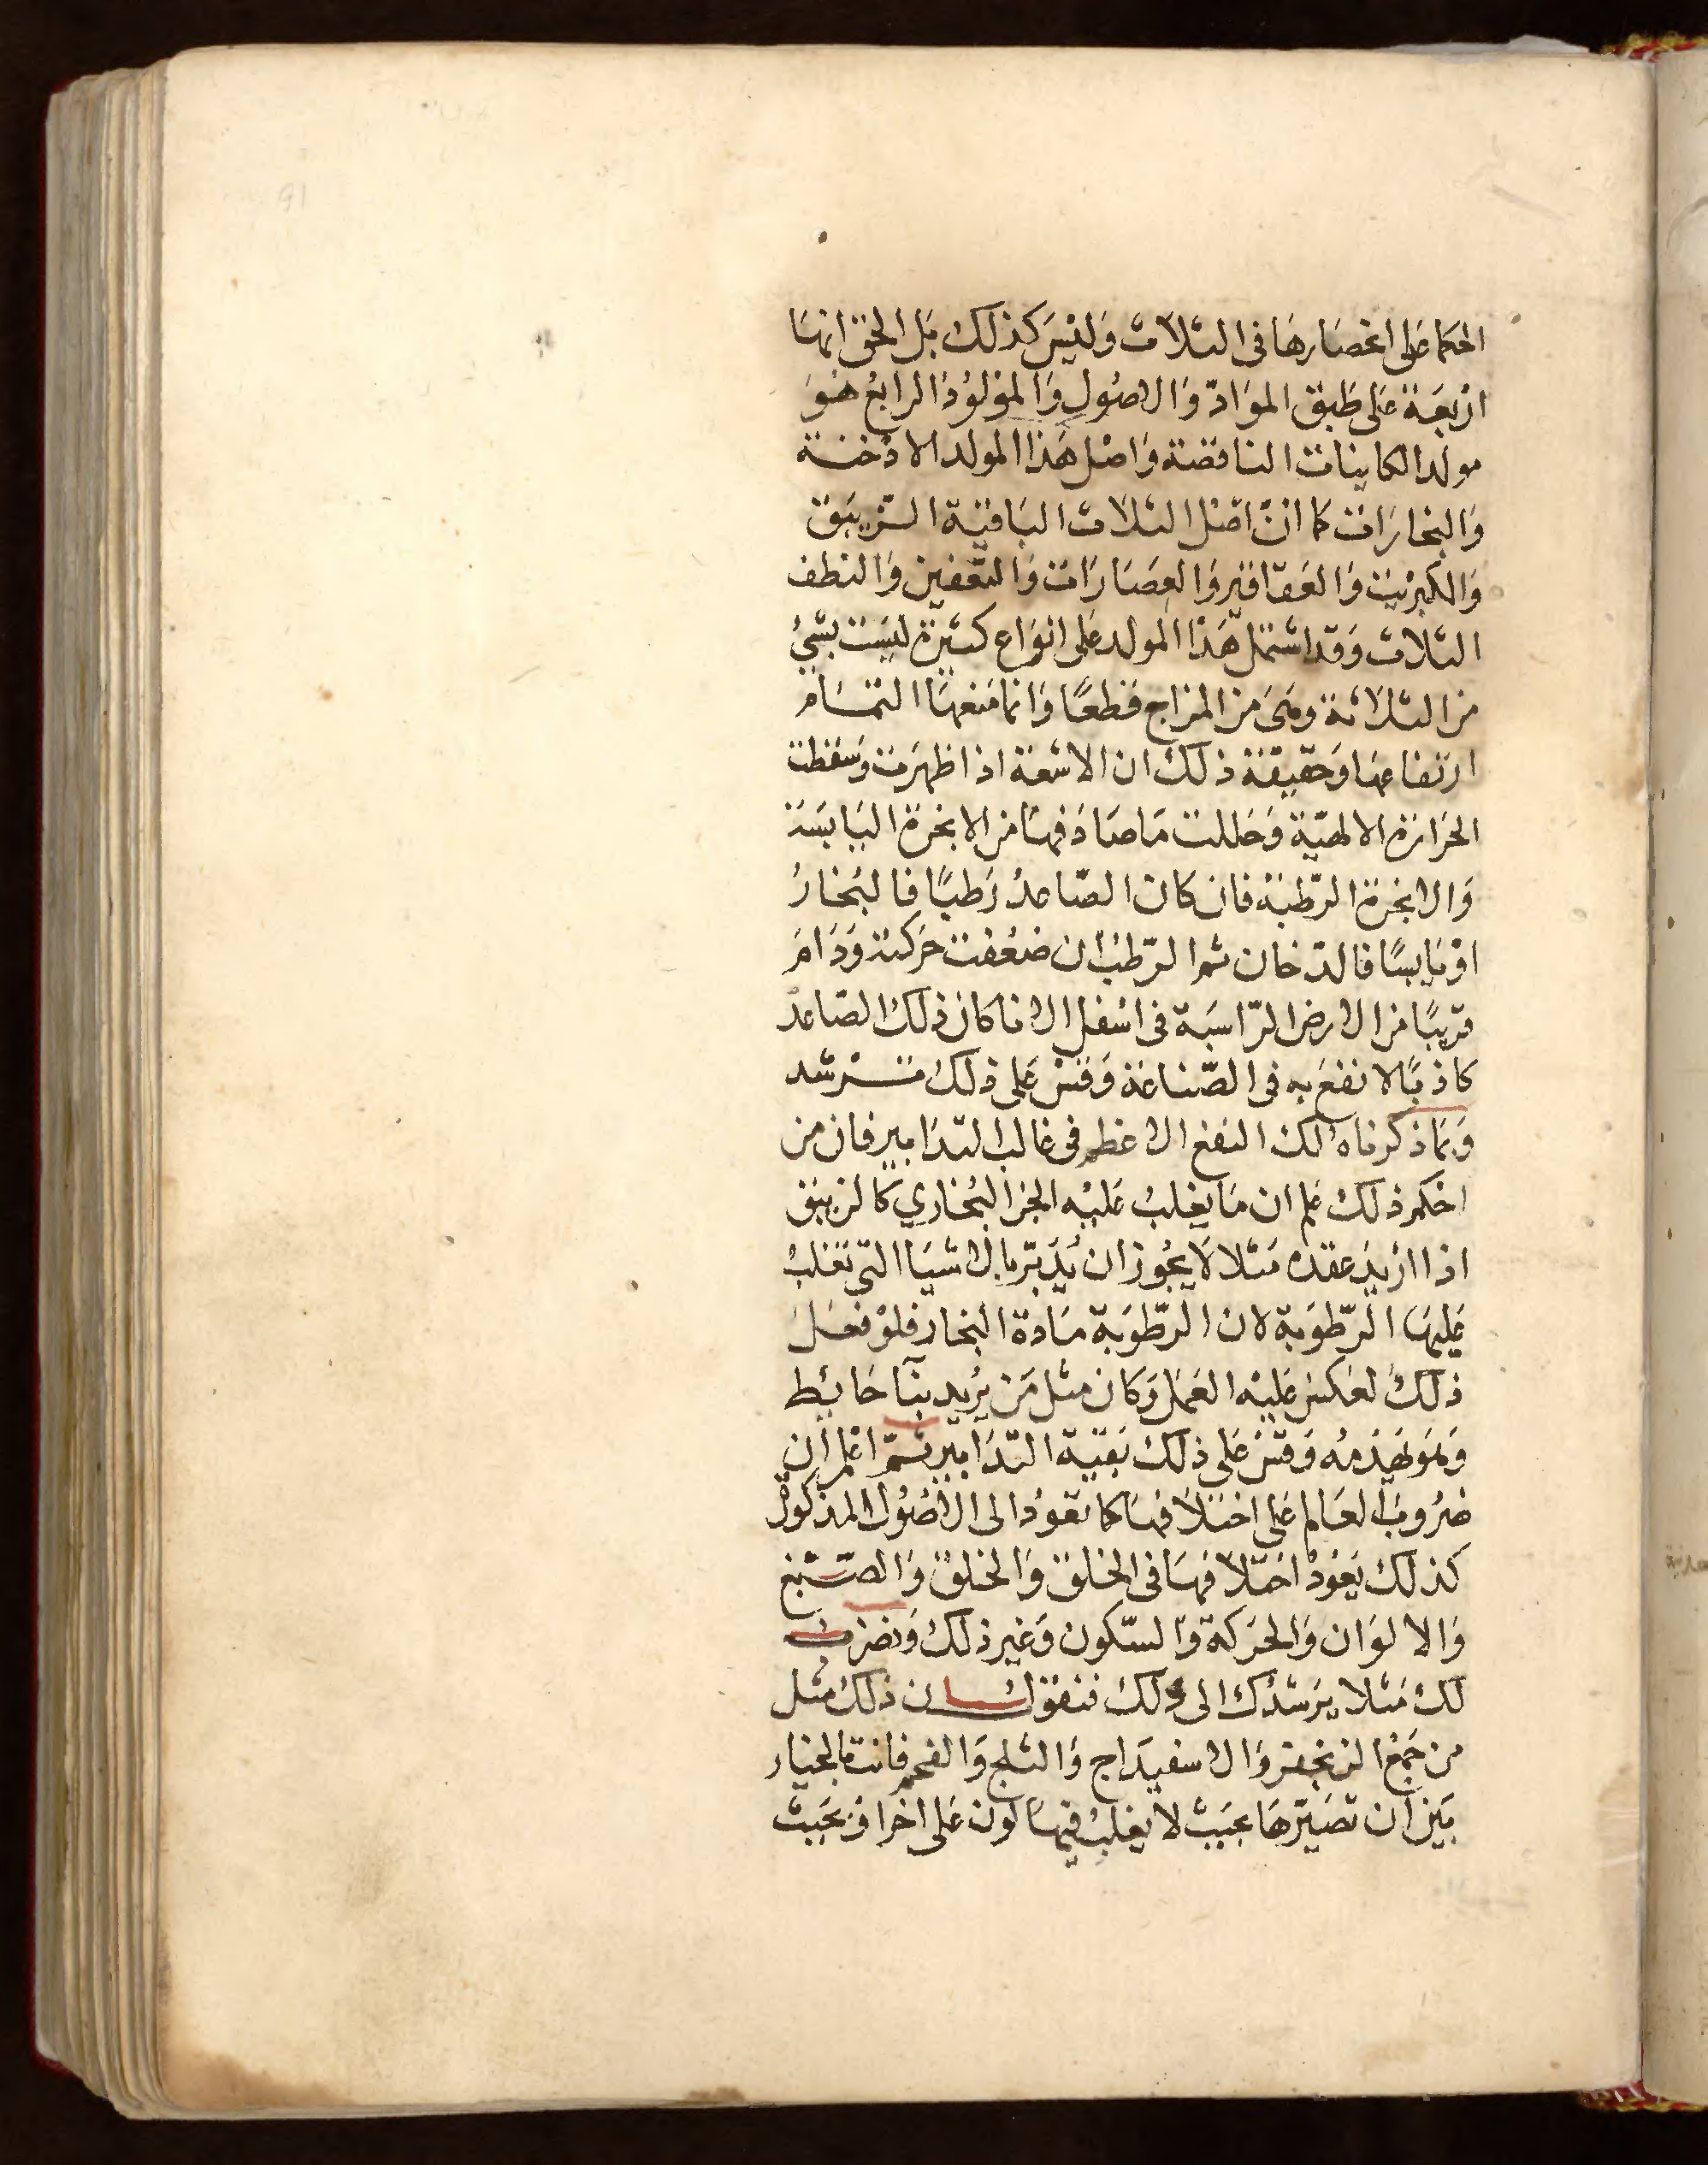 الحكما على انحصارها فى الثلاث وَليْسَ كذلك بَل الحق انهَا
ارْبعَة عَلى طَبق الموَادّ وَالاصُول وَالموْلوُدُ الرابعُ هُوَ
مولد الكاينات الناقصَة وَاصْل هَذا المولد الادْخنَة
وَالبخارَات كما انّ اصْل الثلاث البَاقيَة الزّيبَق
وَالكبرْيت وَالعَقاقير وَالعصَارَات وَالتّعْفين وَالنطف
الثلاث وَقد اشتمَل هَذا المولد عَلى انوَاع كثيرَة ليسَت بشئ
من الثلاثة ومَىَ من المزاج قطعًا وَانما مَنعهَا التمَام
ارتفاعها وَحَقيقَة ذلك ان الاشعّة اذا ظهرَت وَسَقطت
الحَرارَة الالهيّة وَحَللت مَا صَادَفهَا من الابخرَة اليَابسَة
وَالابخرة الرّطبَة فان كان الصّاعدُ رَطبًا فالبُخارُ
اوْ يَابسًا فالدّخان ثم الرّطب ان ضعُفت حَركته وَدَامَ
قريبًا من الارض الرّاسبَة فى اسْفل الانا كان ذلك الصّاعد
كاذبًا لا نفعَ به فى الصّناعَة وَقسْ عَلى ذلك ترشد
وَبمَا ذكرناه لك النفع الاعظم فى غالب التدَابير فان من
احْكم ذلك عَلم ان مَا يغلبُ عَليْه الجز البُخاري كالزيبق
اذا ارْيدَ عقده مَثلا لاَ يجُوز ان يُدَبّر بالاشيَا التى تغلبُ
عَليهَا الرّطوَبة لان الرّطوَبة مَادة البخار فلوْ فعَل
ذلك لعَكسَ عَليْه العَمَل وَكان مثل مَن يُريد بنآ حَايُط
وَهوَ يَهْدمُه وَقسْ عَلى ذلك بَقيّة التدَابير ثمّ اعْلم ان
ضرُوبَ العَالم عَلى اختلاَفهَا كما تعوُد الى الاصُول المذكورة
كذلك يَعُودُ اختلافهَا فى الخلق وَالخلق وَالصّبْغ
وَالالوَان وَالحَركة وَالسّكون وَغير ذلك وَنضربُ
لك مَثلا يرَشدُك الى ذلك فنقول ان ذلك مثل
من جمَع الزنجفر وَالاسفيدَاج وَالثلج وَالفحم فانت بالخيار
بَين ان تصَيّرهَا بحيَث لا يغلبُ فيهَا لون عَلى اخر اوْ بحَيث